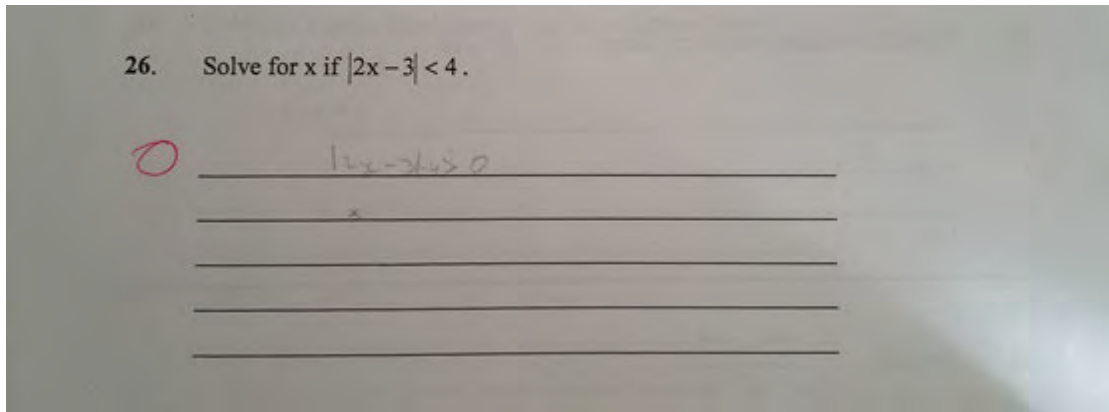 26. Solve for x if |2x – 3| < 4.
0
x